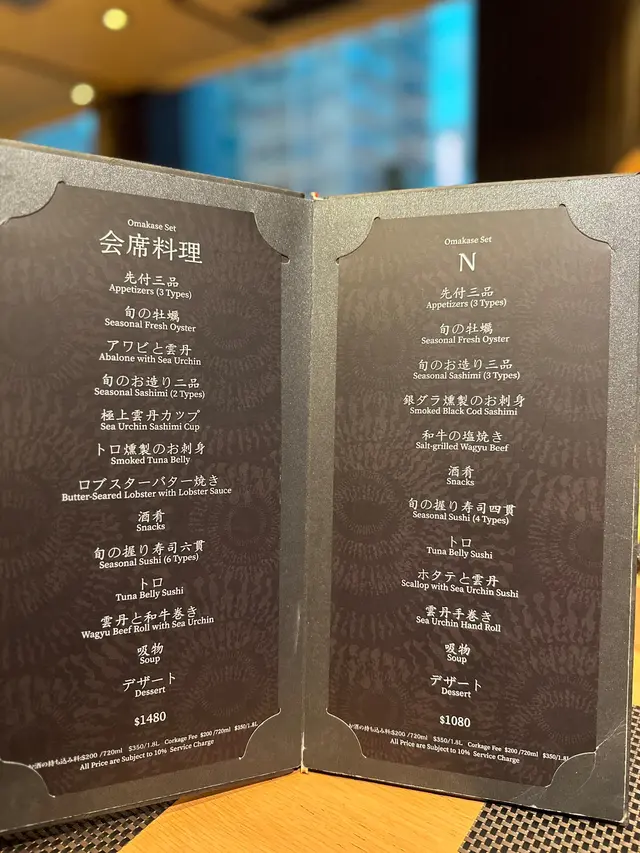 Omakase Set
会席料理
先付三品
Appetizers (3 Types)
旬の牡蠣
Seasonal Fresh Oyster
アワビと雲丹
Abalone with Sea Urchin
旬のお造り二品
Seasonal Sashimi (2 Types)
極上雲丹カップ
Sea Urchin Sashimi Cup
トロ燻製のお刺身
Smoked Tuna Belly
ロブスターバター焼き
Butter-Seared Lobster with Lobster Sauce
酒肴
Snacks
旬の握り寿司六貫
Seasonal Sushi (6 Types)
トロ
Tuna Belly Sushi
雲丹と和牛巻き
Wagyu Beef Roll with Sea Urchin
吸物
Soup
デザート
Dessert
$1480
お酒の持ち込み料:$200 /720ml $350/1.8L Corkage Fee $200 /720ml $350/1.8L
All Price are Subject to 10% Service Charge
Omakase Set
N
先付三品
Appetizers (3 Types)
旬の牡蠣
Seasonal Fresh Oyster
旬のお造り三品
Seasonal Sashimi (3 Types)
銀ダラ燻製のお刺身
Smoked Black Cod Sashimi
和牛の塩焼き
Salt-grilled Wagyu Beef
酒肴
Snacks
旬の握り寿司四貫
Seasonal Sushi (4 Types)
トロ
Tuna Belly Sushi
ホタテと雲丹
Scallop with Sea Urchin Sushi
雲丹手巻き
Sea Urchin Hand Roll
吸物
Soup
デザート
Dessert
$1080
お酒の持ち込み料:$200 /720ml $350/1.8L Corkage Fee $200 /720ml $350/1.8L
All Price are Subject to 10% Service Charge